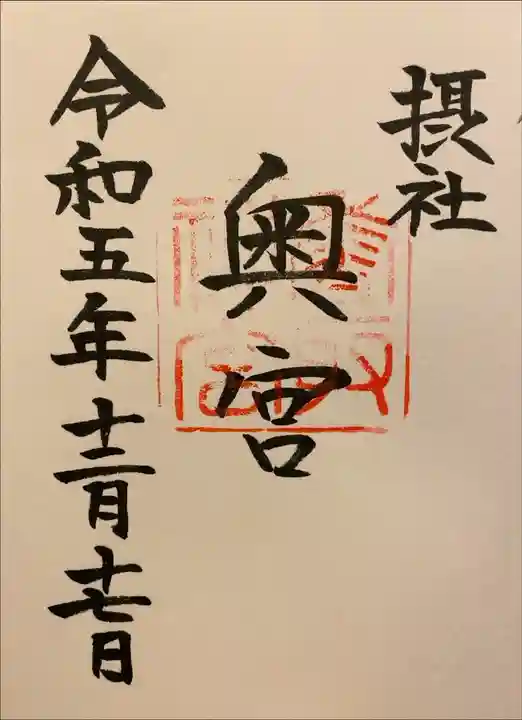 摂社
奥宮
令和五年十二月十七日